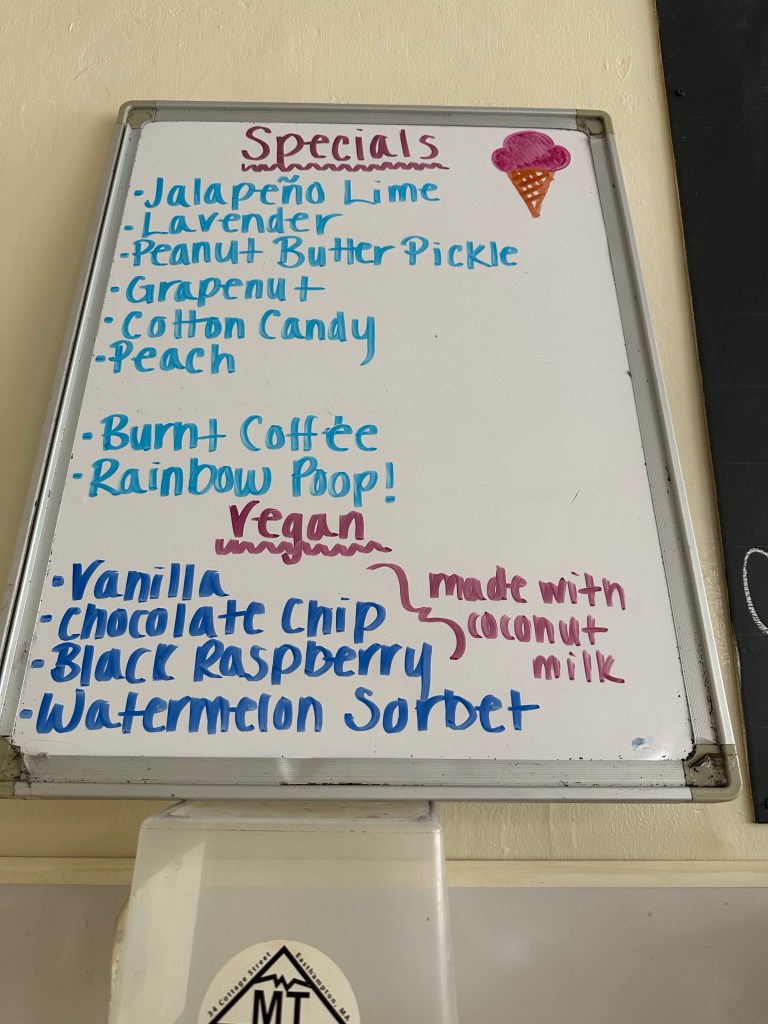 Specials
• Jalapeño Lime
• Lavender
• Peanut Butter Pickle
• Grapenut
• Cotton Candy
• Peach
• Burnt Coffee
• Rainbow Poop!
Vegan
• Vanilla
• Chocolate Chip
• Black Raspberry
made with
coconut
milk
• Watermelon Sorbet
34 Cottage Street
Easthampton, MA
MT